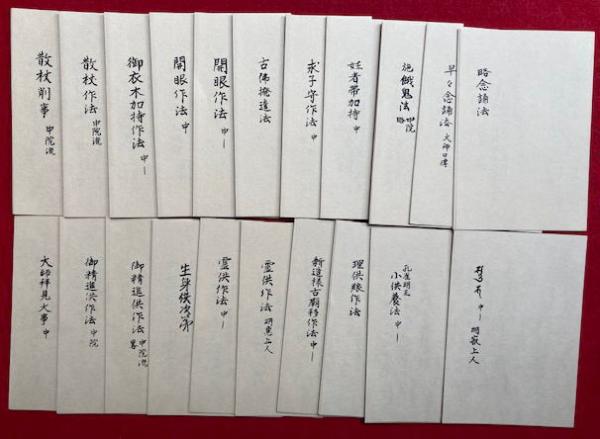 略念誦法
早々念誦法 大師口傳
施餓鬼法 中院 略
妊者帯加持 中
求子守作法 中一
古佛撥遣法
開眼作法 中一
開眼作法 中
御衣木加持作法 中一
散杖作法 中院流
散杖削事 中院流
中一 明寂上人
孔雀明王
小供養法 中一
理供作法
新造古廟移作法 中一
霊供作法 明恵上人
霊供作法 中一
生身供次第
御精進供作法 中院流
御精進供作法 中院
大師拝見大事 中